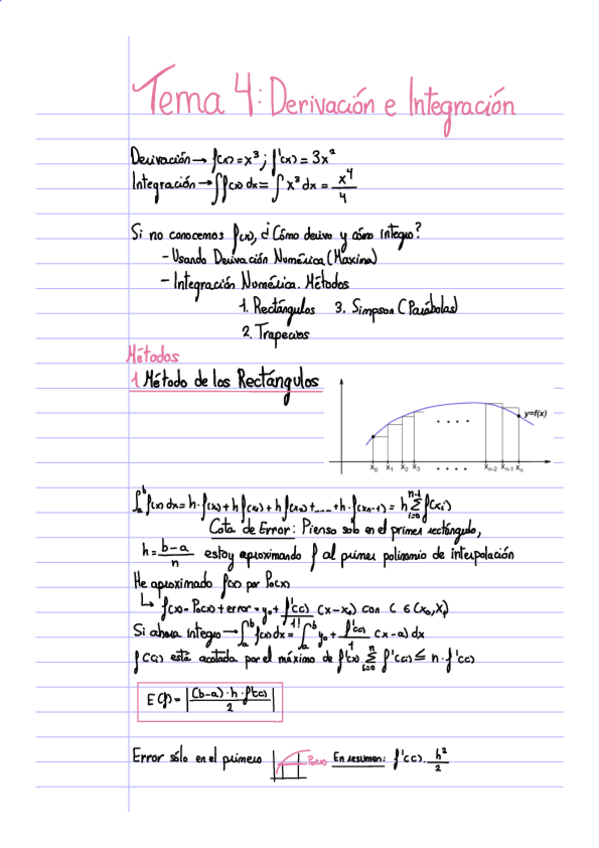 Tema 4: Derivación e Integración
Derivación → f(x) = x³ ; f'(x) = 3x²
Integración → ∫f(x) dx = ∫x³ dx = x⁴/4
Si no conocemos f(x), ¿Cómo derivo y cómo integro?
- Usando Derivación Numérica (Maxima)
- Integración Numérica. Métodos
1. Rectángulos 3. Simpson (Parábolas)
2. Trapecios
Métodos
1. Método de los Rectángulos
y=f(x)
x₀ x₁ x₂ x₃ . . . . xₙ₋₂ xₙ₋₁ xₙ
∫ₐᵇ f(x) dx = h·f(x₀) + h f(x₁) + h f(x₂) + ..... + h·f(xₙ₋₁) = h Σᵢ₌₀ⁿ⁻¹ f(xᵢ)
Cota de Error: Pienso solo en el primer rectángulo,
h = b-a/n estoy aproximando f al primer polinomio de interpolación
He aproximado f(x) por P₀(x)
↳ f(x) = P₀(x) + error = y₀ + f'(c)/1! (x-x₀) con c ∈ (x₀, x₁)
Si ahora integro → ∫ₐᵇ f(x) dx = ∫ₐᵇ y₀ + f'(c)/1 (x-a) dx
f'(c) está acotada por el máximo de f'(x) Σᵢ₌₀ⁿ f'(c) ≤ n · f'(c)
E(f) = |(b-a)·h·f'(c)/2|
Error sólo en el primero P₀(x) En resumen: f'(c) · h²/2